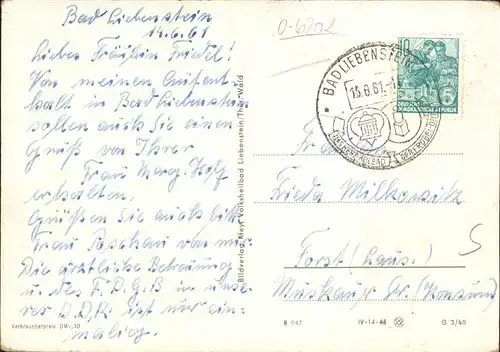 Bad Liebenstein
14.6.61
Liebes Fräulein Friedel!
Von meinen Aufent-
halt in Bad Liebenstein
sollen auch Sie einen
Gruß von Ihrer
Frau Marg.
erhalten.
Grüßen Sie auch bitte
Frau von mir.
Die ärztliche Betreuung
u. des F.D.G.B in unse-
rer D.D.R ist nur ein-
malig.
Verbraucherpreis DM -,10
Bildverlag Meyr Volksheilbad Liebenstein/Thür. Wald
0-6202
BAD LIEBENSTEIN
15.6.61
10
5
DEUTSCHE
DEMOKRATISCHE REPUBLIK
Frl.
Frieda
Forst (Laus.)
Muskauer Str. (Konsum)
S
B 047 IV-14-48 S 2/60